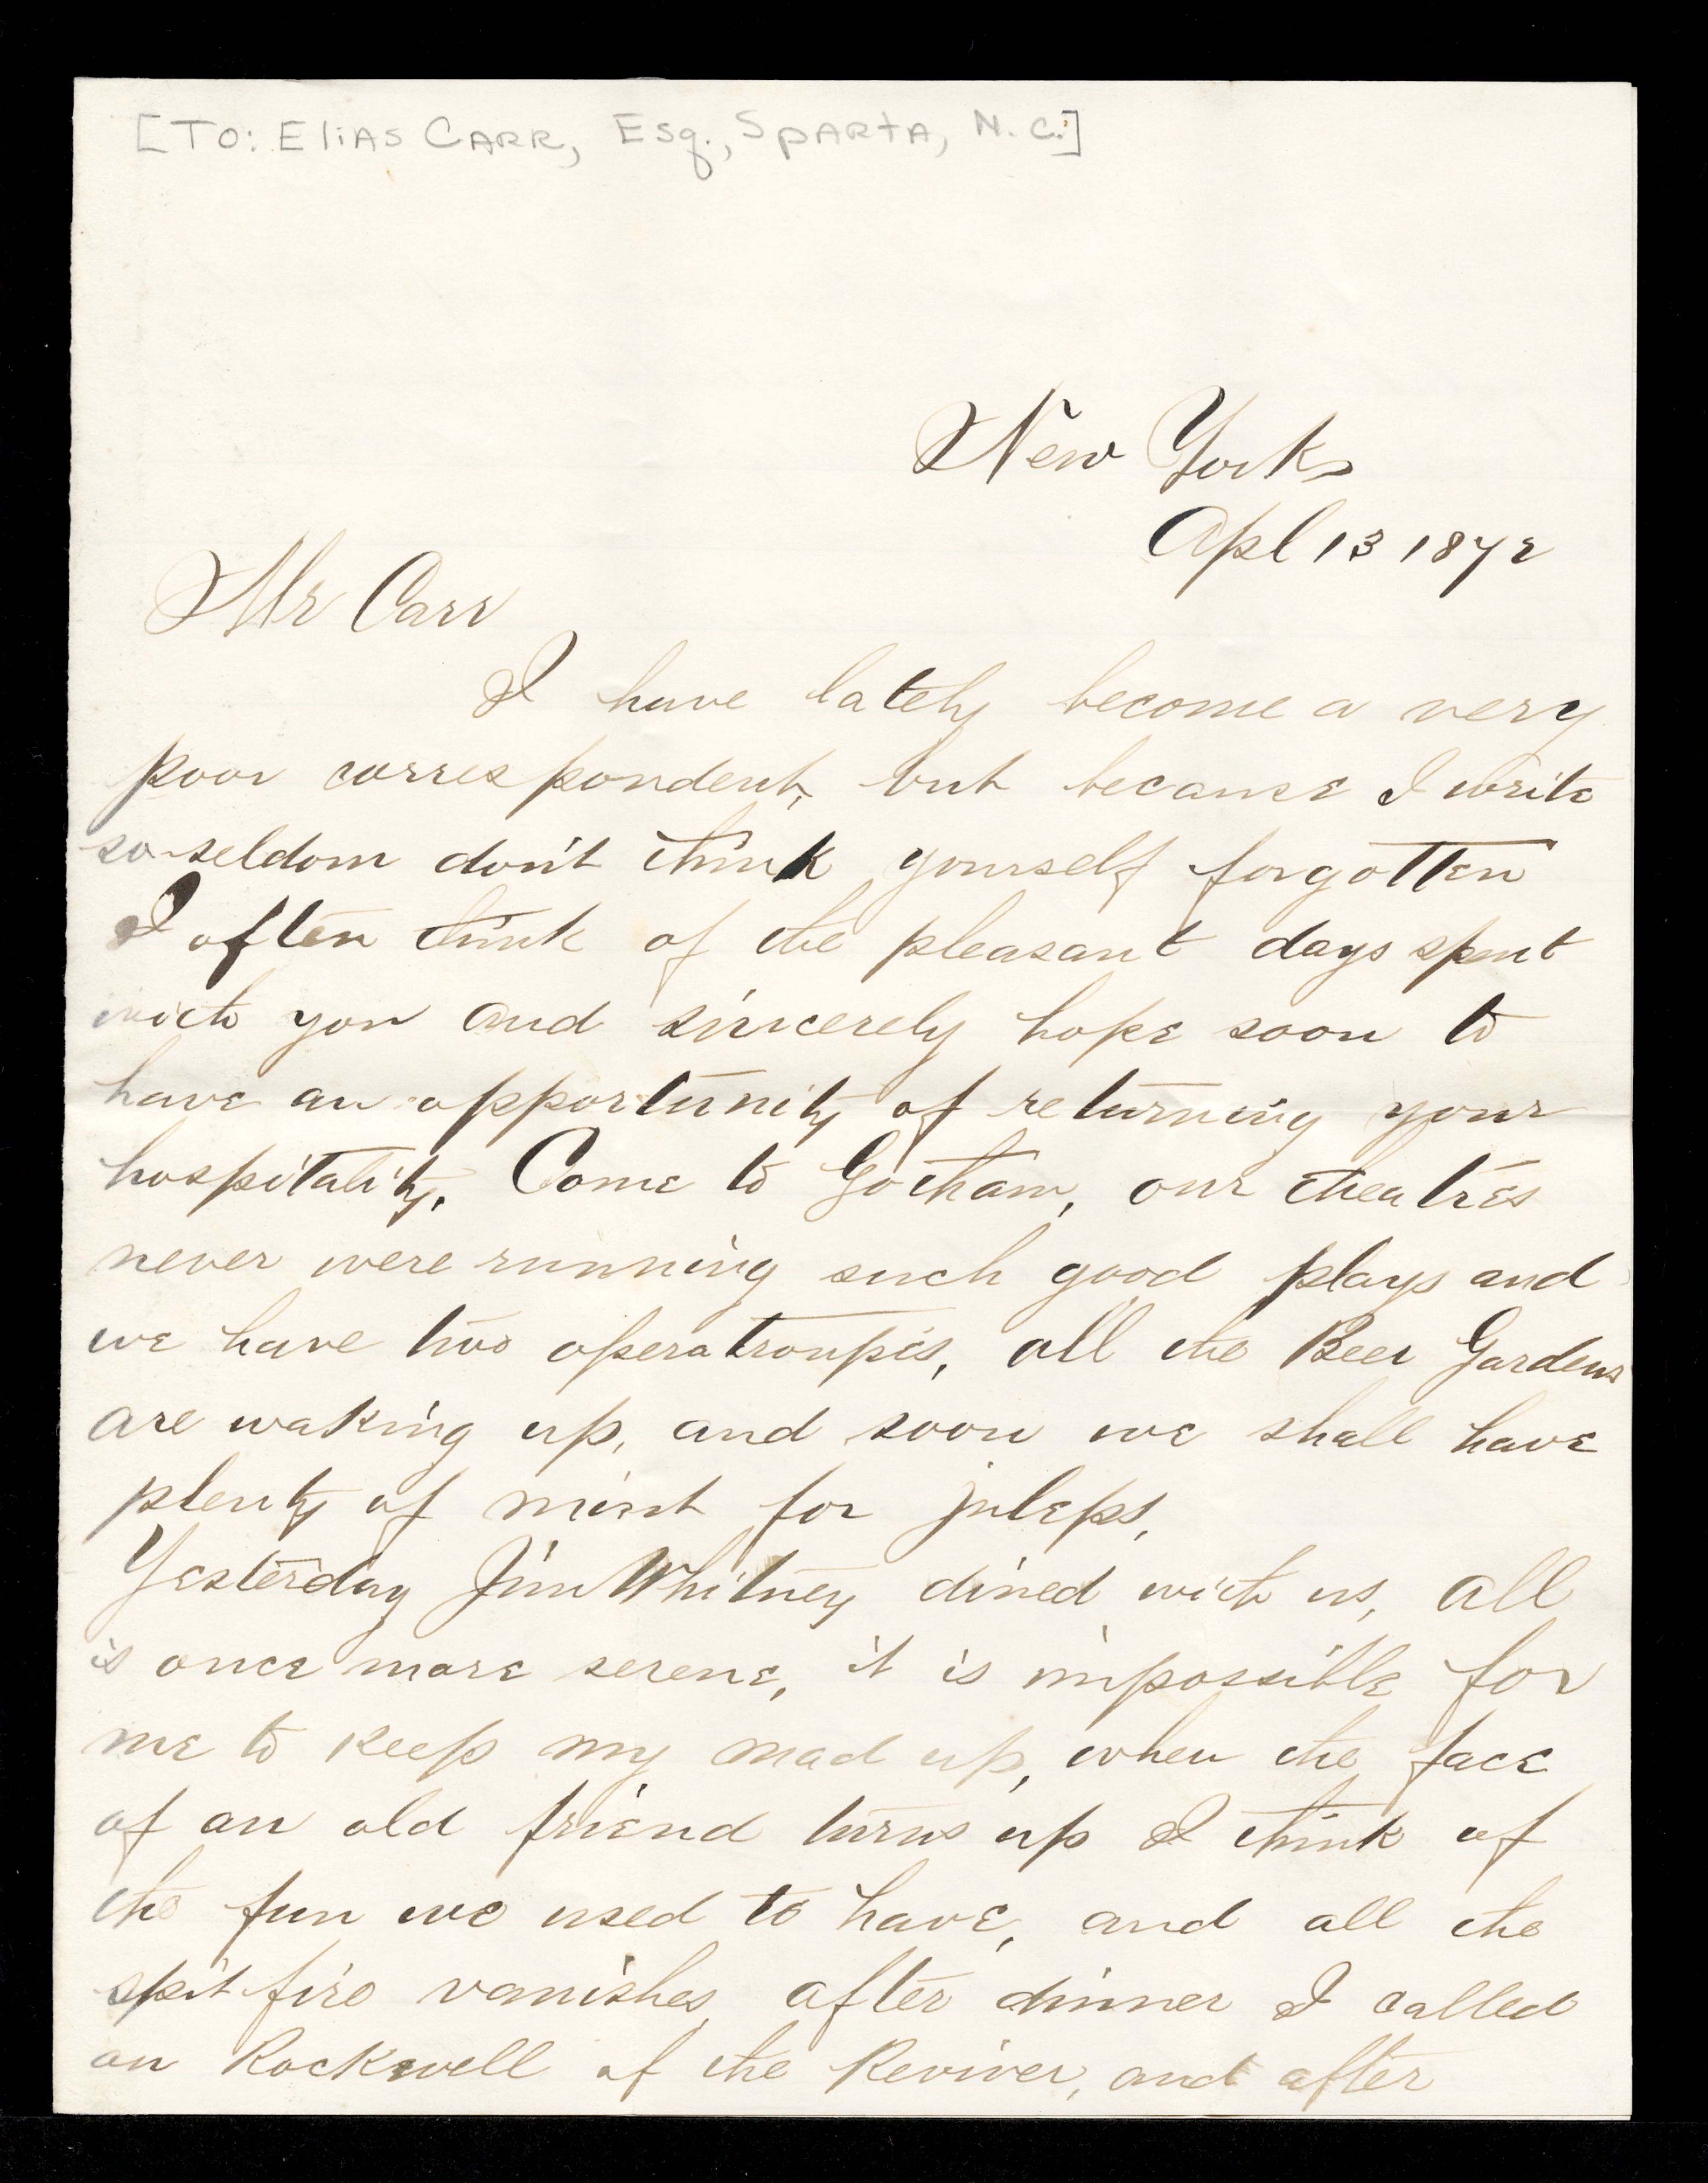 [TO: Elias Carr, Esq., Sparta, N.C.]
New York
Apl 13 1872
Mr Carr
I have lately become a very
poor correspondent, but because I write
so seldom don't think yourself forgotten
I often think of the pleasant days spent
with you and sincerely hope soon to
have an opportunity of returning your
hospitality. Come to Gotham, our theatres
never were running such good plays and
we have two opera troupes, all the Beer Gardens
are waking up, and soon we shall have
plenty of mint for juleps.
Yesterday Jim Whitney dined with us, all
is once more serene, it is impossible for
me to keep my mad up, when the face
of an old friend turns up I think of
the fun we used to have, and all the
spit fire vanishes, after dinner I called
on Rockwell of the Reviver, and after